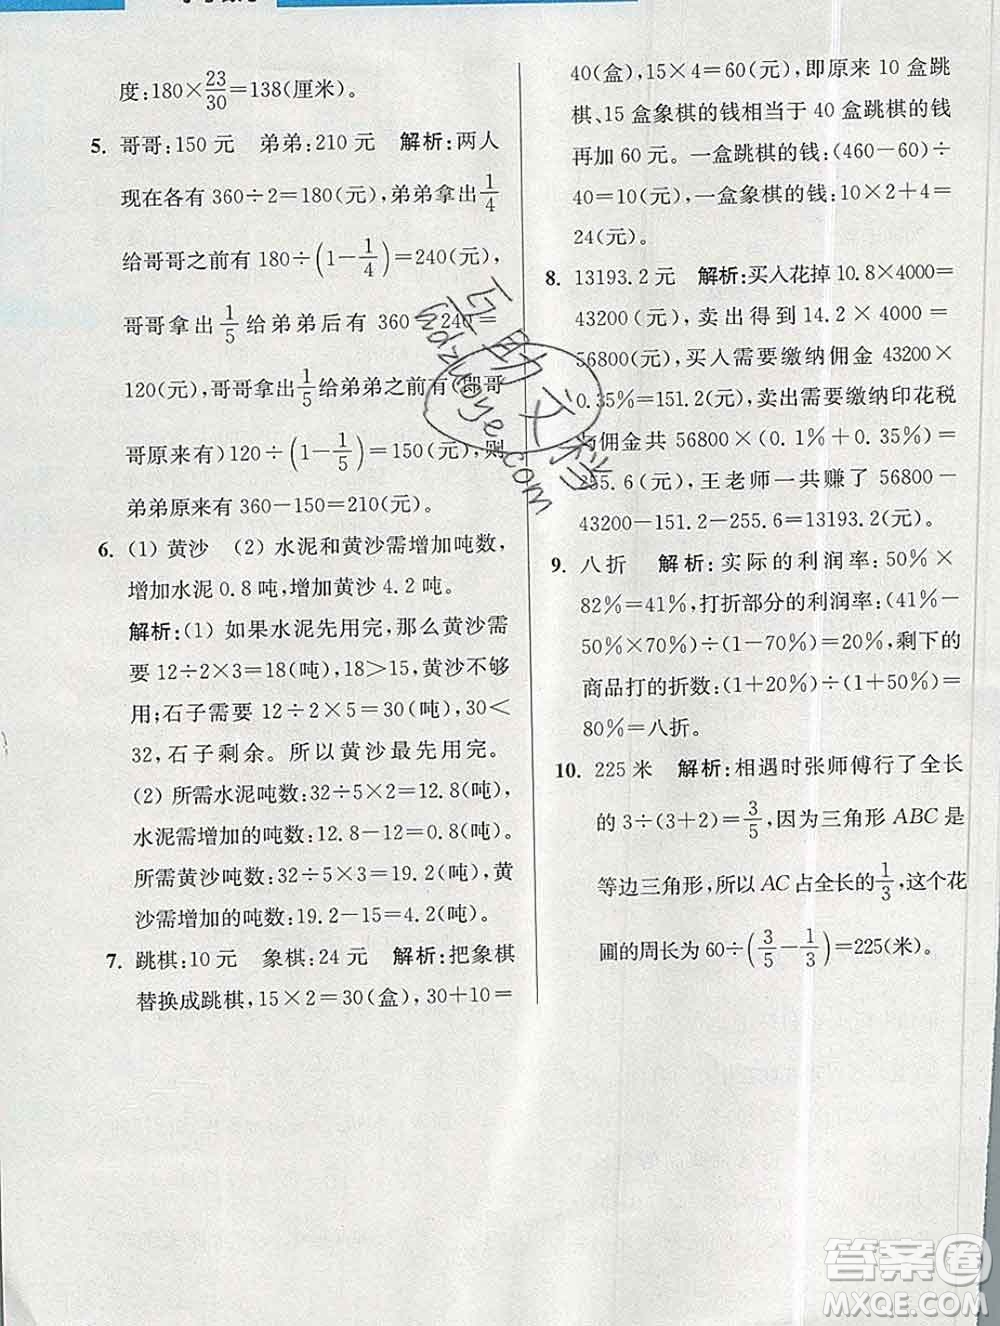 度:180×23/30=138(厘米)。
5. 哥哥:150元 弟弟:210元 解析:两人
现在各有360÷2=180(元),弟弟拿出1/4
给哥哥之前有180÷(1-1/4)=240(元),
哥哥拿出1/5给弟弟后有360-240=
120(元),哥哥拿出1/5给弟弟之前有(即哥
哥原来有)120÷(1-1/5)=150(元),则
弟弟原来有360-150=210(元)。
6. (1) 黄沙 (2) 水泥和黄沙需增加吨数,
增加水泥0.8吨,增加黄沙4.2吨。
解析:(1) 如果水泥先用完,那么黄沙需
要12÷2×3=18(吨),18>15,黄沙不够
用;石子需要12÷2×5=30(吨),30<
32,石子剩余。所以黄沙最先用完。
(2) 所需水泥吨数:32÷5×2=12.8(吨),
水泥需增加的吨数:12.8-12=0.8(吨)。
所需黄沙吨数:32÷5×3=19.2(吨),黄
沙需增加的吨数:19.2-15=4.2(吨)。
7. 跳棋:10元 象棋:24元 解析:把象棋
替换成跳棋,15×2=30(盒),30+10=
40(盒),15×4=60(元),即原来10盒跳
棋、15盒象棋的钱相当于40盒跳棋的钱
再加60元。一盒跳棋的钱:(460-60)÷
40=10(元),一盒象棋的钱:10×2+4=
24(元)。
8. 13193.2元 解析:买入花掉10.8×4000=
43200(元),卖出得到14.2×4000=
56800(元),买入需要缴纳佣金43200×
0.35%=151.2(元),卖出需要缴纳印花税
与佣金共56800×(0.1%+0.35%)=
255.6(元),王老师一共赚了56800-
43200-151.2-255.6=13193.2(元)。
9. 八折 解析:实际的利润率:50%×
82%=41%,打折部分的利润率:(41%-
50%×70%)÷(1-70%)=20%,剩下的
商品打的折数:(1+20%)÷(1+50%)=
80%=八折。
10. 225米 解析:相遇时张师傅行了全长
的3÷(3+2)=3/5,因为三角形ABC是
等边三角形,所以AC占全长的1/3,这个花
圃的周长为60÷(3/5-1/3)=225(米)。
互助文档
hdzuoye.com
答案圈
MXQE.COM